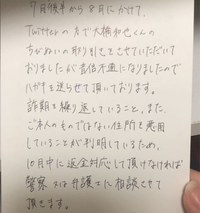 7月後半から8月にかけて、
Twitterの方で大橋和也くんの
ちびぬいの取り引きをさせていただいて
おりましたが音信不通になりましたので
ハガキを送らせて頂いております。
詐欺を繰り返していること、また、
ご本人のものではない住所を悪用
していることが判明しているため、
10日中に返金対応して頂けなければ
警察又は弁護士に相談させて
頂きます。